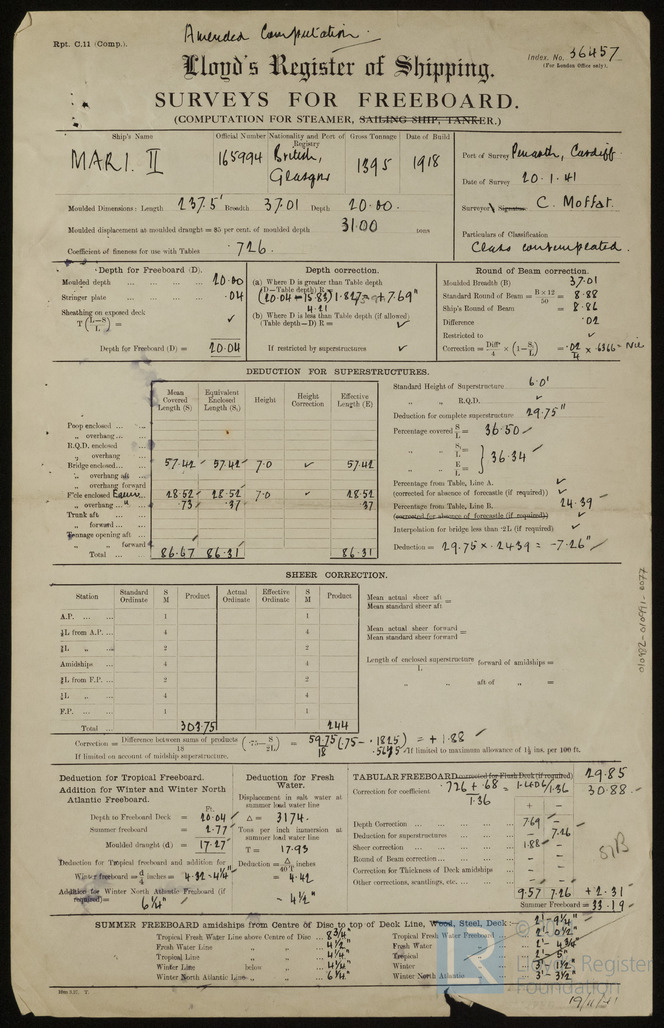 Rpt. C.11 (Comp.).
Amended Computation.
Index. No. 36457
(For London Office only).
Lloyd's Register of Shipping.
SURVEYS FOR FREEBOARD.
(COMPUTATION FOR STEAMER, SAILING SHIP, TANKER.)
Ship's Name Official Number Nationality and Port of Registry Gross Tonnage Date of Build
MARI. II 165994 British, Glasgow 1395 1918
Port of Survey Penarth, Cardiff
Date of Survey 20.1.41
Surveyor's Signature C. Moffat.
Particulars of Classification
Class contemplated.
Moulded Dimensions: Length 237.5' Breadth 37.01 Depth 20.00.
Moulded displacement at moulded draught = 85 per cent. of moulded depth 3100 tons
Coefficient of fineness for use with Tables .726.
Depth for Freeboard (D).
Moulded depth ... 20.00
Stringer plate ... .04
Sheathing on exposed deck
T (L-S/L) = ✓
Depth for Freeboard (D) = 20.04
Depth correction.
(a) Where D is greater than Table depth
(D—Table depth) R =
(20.04 - 15.83) 1.827 = + 7.69"
4.21
(b) Where D is less than Table depth (if allowed)
(Table depth—D) R = ✓
If restricted by superstructures ✓
Round of Beam correction.
Moulded Breadth (B) 37.01
Standard Round of Beam = B×12/50 = 8.88
Ship's Round of Beam = 8.86
Difference .02
Restricted to ✓
Correction = Diff/4 × (1-S/L) = .02/4 × .6366 = Nil
DEDUCTION FOR SUPERSTRUCTURES.
Mean Covered Length (S) Equivalent Enclosed Length (S₁) Height Height Correction Effective Length (E)
Poop enclosed ...
„ overhang ...
R.Q.D. enclosed
„ overhang
Bridge enclosed... 57.42 57.42 7.0 ✓ 57.42
„ overhang aft
„ overhang forward
F'cle enclosed Equiv. 28.52 28.52 7.0 ✓ 28.52
„ overhang .73 .37 .37
Trunk aft ...
„ forward ...
Tonnage opening aft ...
„ „ forward
Total ... 86.67 86.31 86.31
Standard Height of Superstructure 6.0'
„ „ R.Q.D. ✓
Deduction for complete superstructure 29.75"
Percentage covered S/L = 36.50
„ „ S₁/L =
„ „ E/L = } 36.34
Percentage from Table, Line A. ✓
(corrected for absence of forecastle (if required)) ✓
Percentage from Table, Line B. 24.39
(corrected for absence of forecastle (if required)) ✓
Interpolation for bridge less than ·2L (if required) ✓
Deduction = 29.75 × .2439 = -7.26"
SHEER CORRECTION.
Station Standard Ordinate S M Product Actual Ordinate Effective Ordinate S M Product
A.P. ... 1 1
⅙L from A.P. ... 4 4
⅓L „ ... 2 2
Amidships ... 4 4
⅓L from F.P. ... 2 2
⅙L „ ... 4 4
F.P. ... 1 1
Total ... 303.75 244
Mean actual sheer aft
Mean standard sheer aft =
Mean actual sheer forward
Mean standard sheer forward =
Length of enclosed superstructure forward of amidships =
L
„ „ aft of „ =
Correction = Difference between sums of products/18 (·75 - S/2L) = 59.75/18 (.75 - .1825) = + 1.88
.5675
If limited on account of midship superstructure.
If limited to maximum allowance of 1½ ins. per 100 ft.
010982-010991-0077
Deduction for Tropical Freeboard.
Addition for Winter and Winter North Atlantic Freeboard.
Ft.
Depth to Freeboard Deck = 20.04
Summer freeboard = 2.77
Moulded draught (d) = 17.27
Deduction for Tropical freeboard and addition for
Winter freeboard = d/4 inches = 4.32 - 4¼"
Addition for Winter North Atlantic Freeboard (if required) = 6¼"
Deduction for Fresh Water.
Displacement in salt water at summer load water line
Δ = 3174.
Tons per inch immersion at summer load water line
T = 17.93
Deduction = Δ/40T inches
= 4.42
- 4½"
TABULAR FREEBOARD corrected for Flush Deck (if required) 29.85
Correction for coefficient .726 + .68/1.36 = 1.406/1.36 30.88
+ -
Depth Correction ... 7.69 -
Deduction for superstructures ... - 7.26
Sheer correction ... 1.88 -
Round of Beam correction... - -
Correction for Thickness of Deck amidships ... - -
Other corrections, scantlings, etc. ... - -
9.57 7.26 + 2.31
Summer Freeboard = 33.19
SUMMER FREEBOARD amidships from Centre of Disc to top of Deck Line, Wood, Steel, Deck :— 2'- 9¼"
Tropical Fresh Water Line above Centre of Disc ... 8¾"
Fresh Water Line „ „ ... 4½"
Tropical Line „ „ ... 4¼"
Winter Line below „ ... 4¼"
Winter North Atlantic Line „ „ ... 6¼"
Tropical Fresh Water Freeboard ... 2'- 0½"
Fresh Water „ ... 2'- 4¾"
Tropical „ ... 2'- 5"
Winter „ ... 3'- 1½"
Winter North Atlantic „ ... 3'- 3½"
© Lloyd's Register Foundation
19/11/41